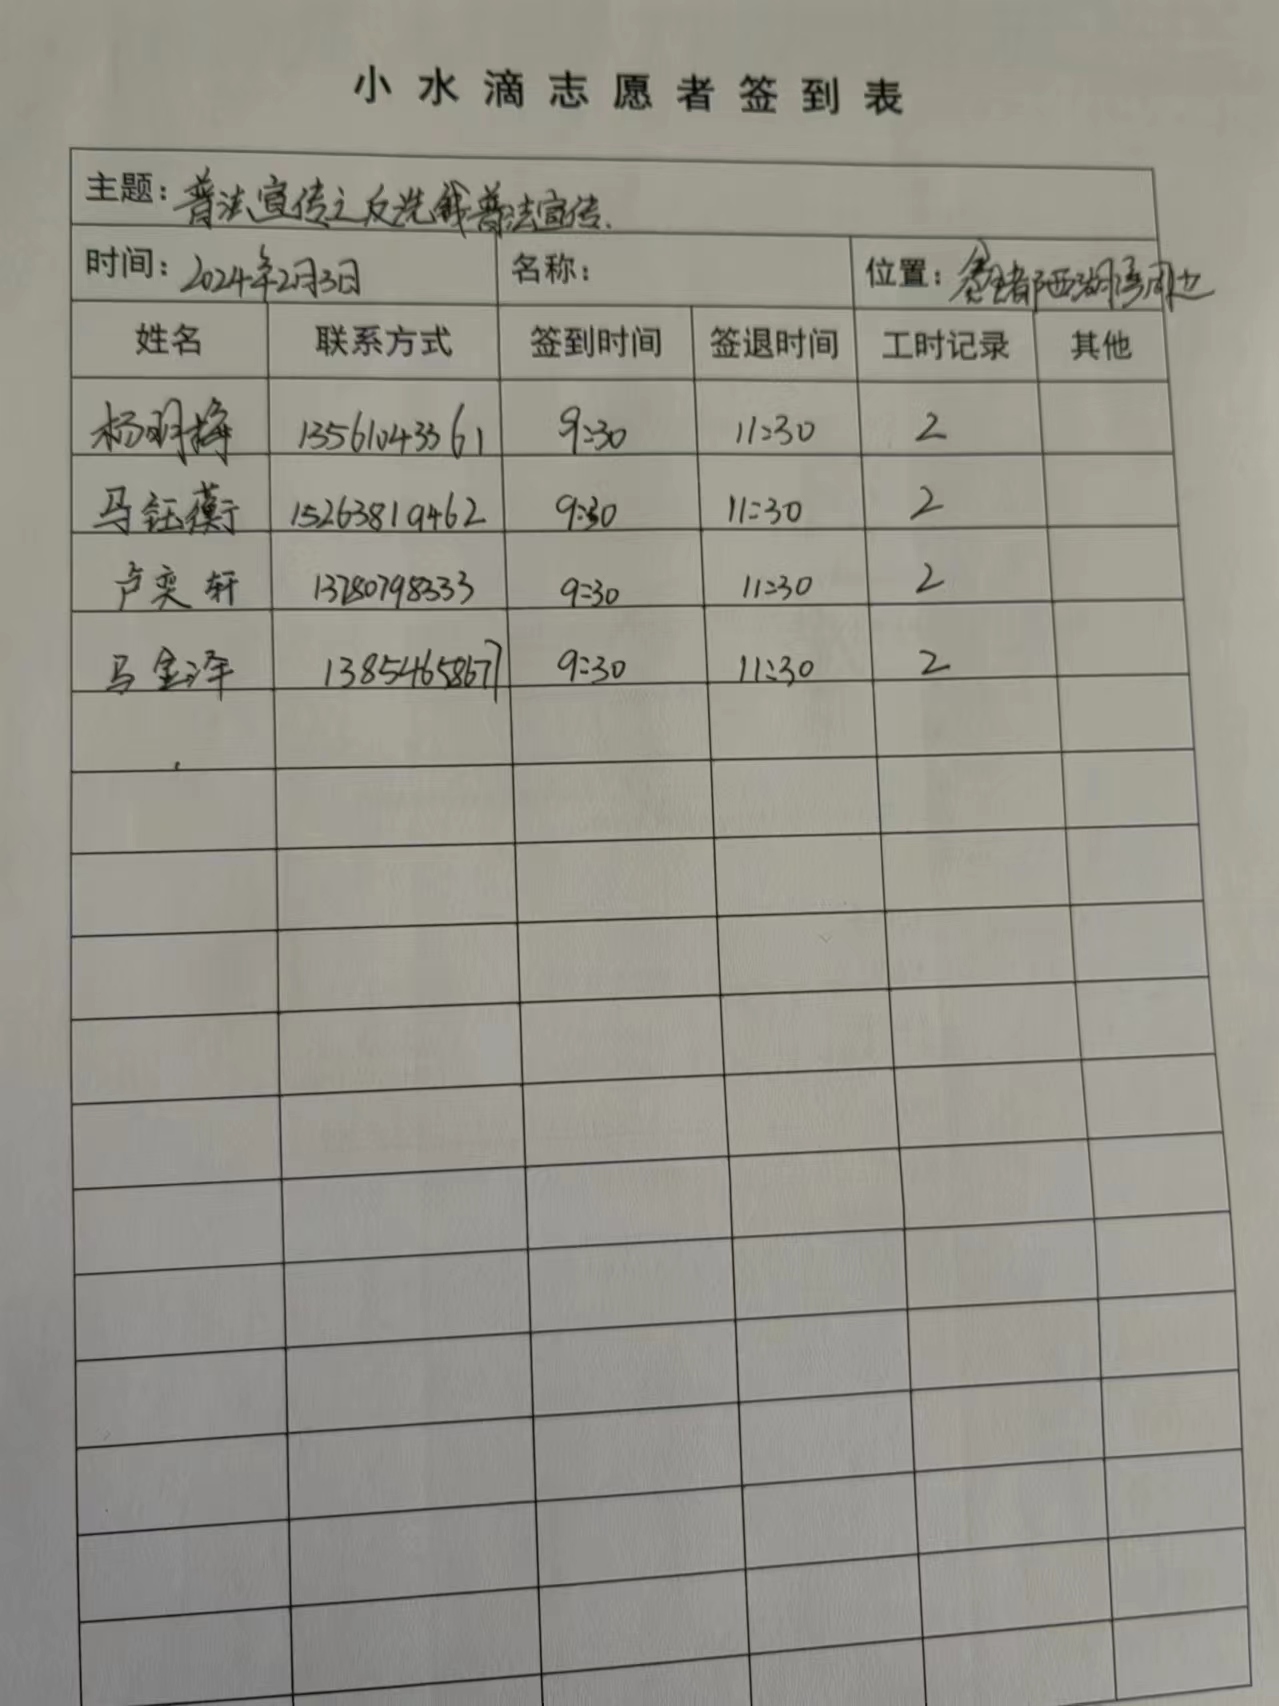 小水滴志愿者签到表
主题：普法宣传之反洗钱普法宣传.
时间：2024年2月3日 名称： 位置：都西湖湾周边
姓名 联系方式 签到时间 签退时间 工时记录 其他
杨羽梅 13561043361 9:30 11:30 2
马钰蘅 15263819462 9:30 11:30 2
卢奕轩 13280798333 9:30 11:30 2
马金泽 13854658677 9:30 11:30 2